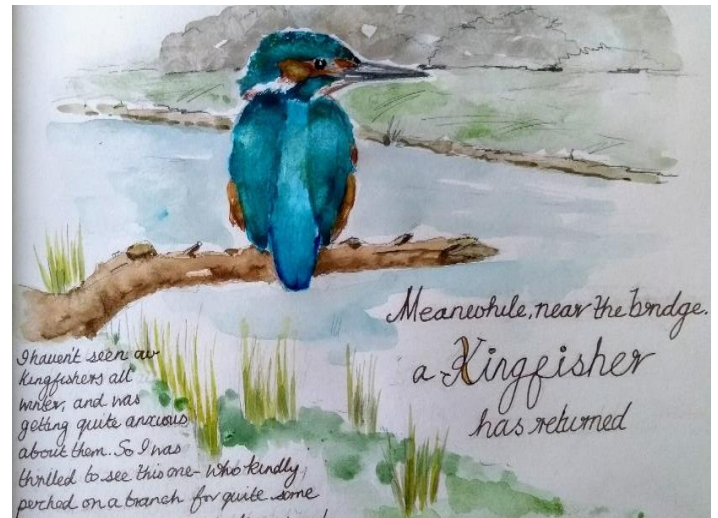 Meanwhile, near the bridge.
a Kingfisher
has returned
I haven't seen any
Kingfishers all
winter, and was
getting quite anxious
about them. So I was
thrilled to see this one - who kindly
perched on a branch for quite some